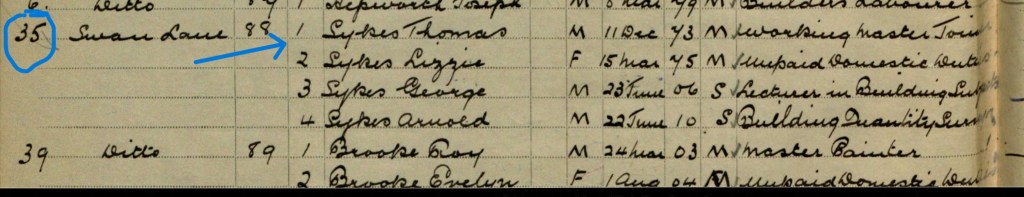 6. Ditto 87 1 Hepworth Joseph M 8 Mar 79 M Builders Labourer
35 Swan Lane 88 1 Sykes Thomas M 11 Dec 73 M Working Master Join
2 Sykes Lizzie F 15 Mar 75 M Unpaid Domestic Duties
3 Sykes George M 23 June 06 S Lecturer in Building Subjects
4 Sykes Arnold M 22 June 10 S Building Quantity Surv
39 Ditto 89 1 Brooke Roy M 24 Mar 03 M Master Painter
2 Brooke Evelyn F 1 Aug 04 M Unpaid Domestic Duties